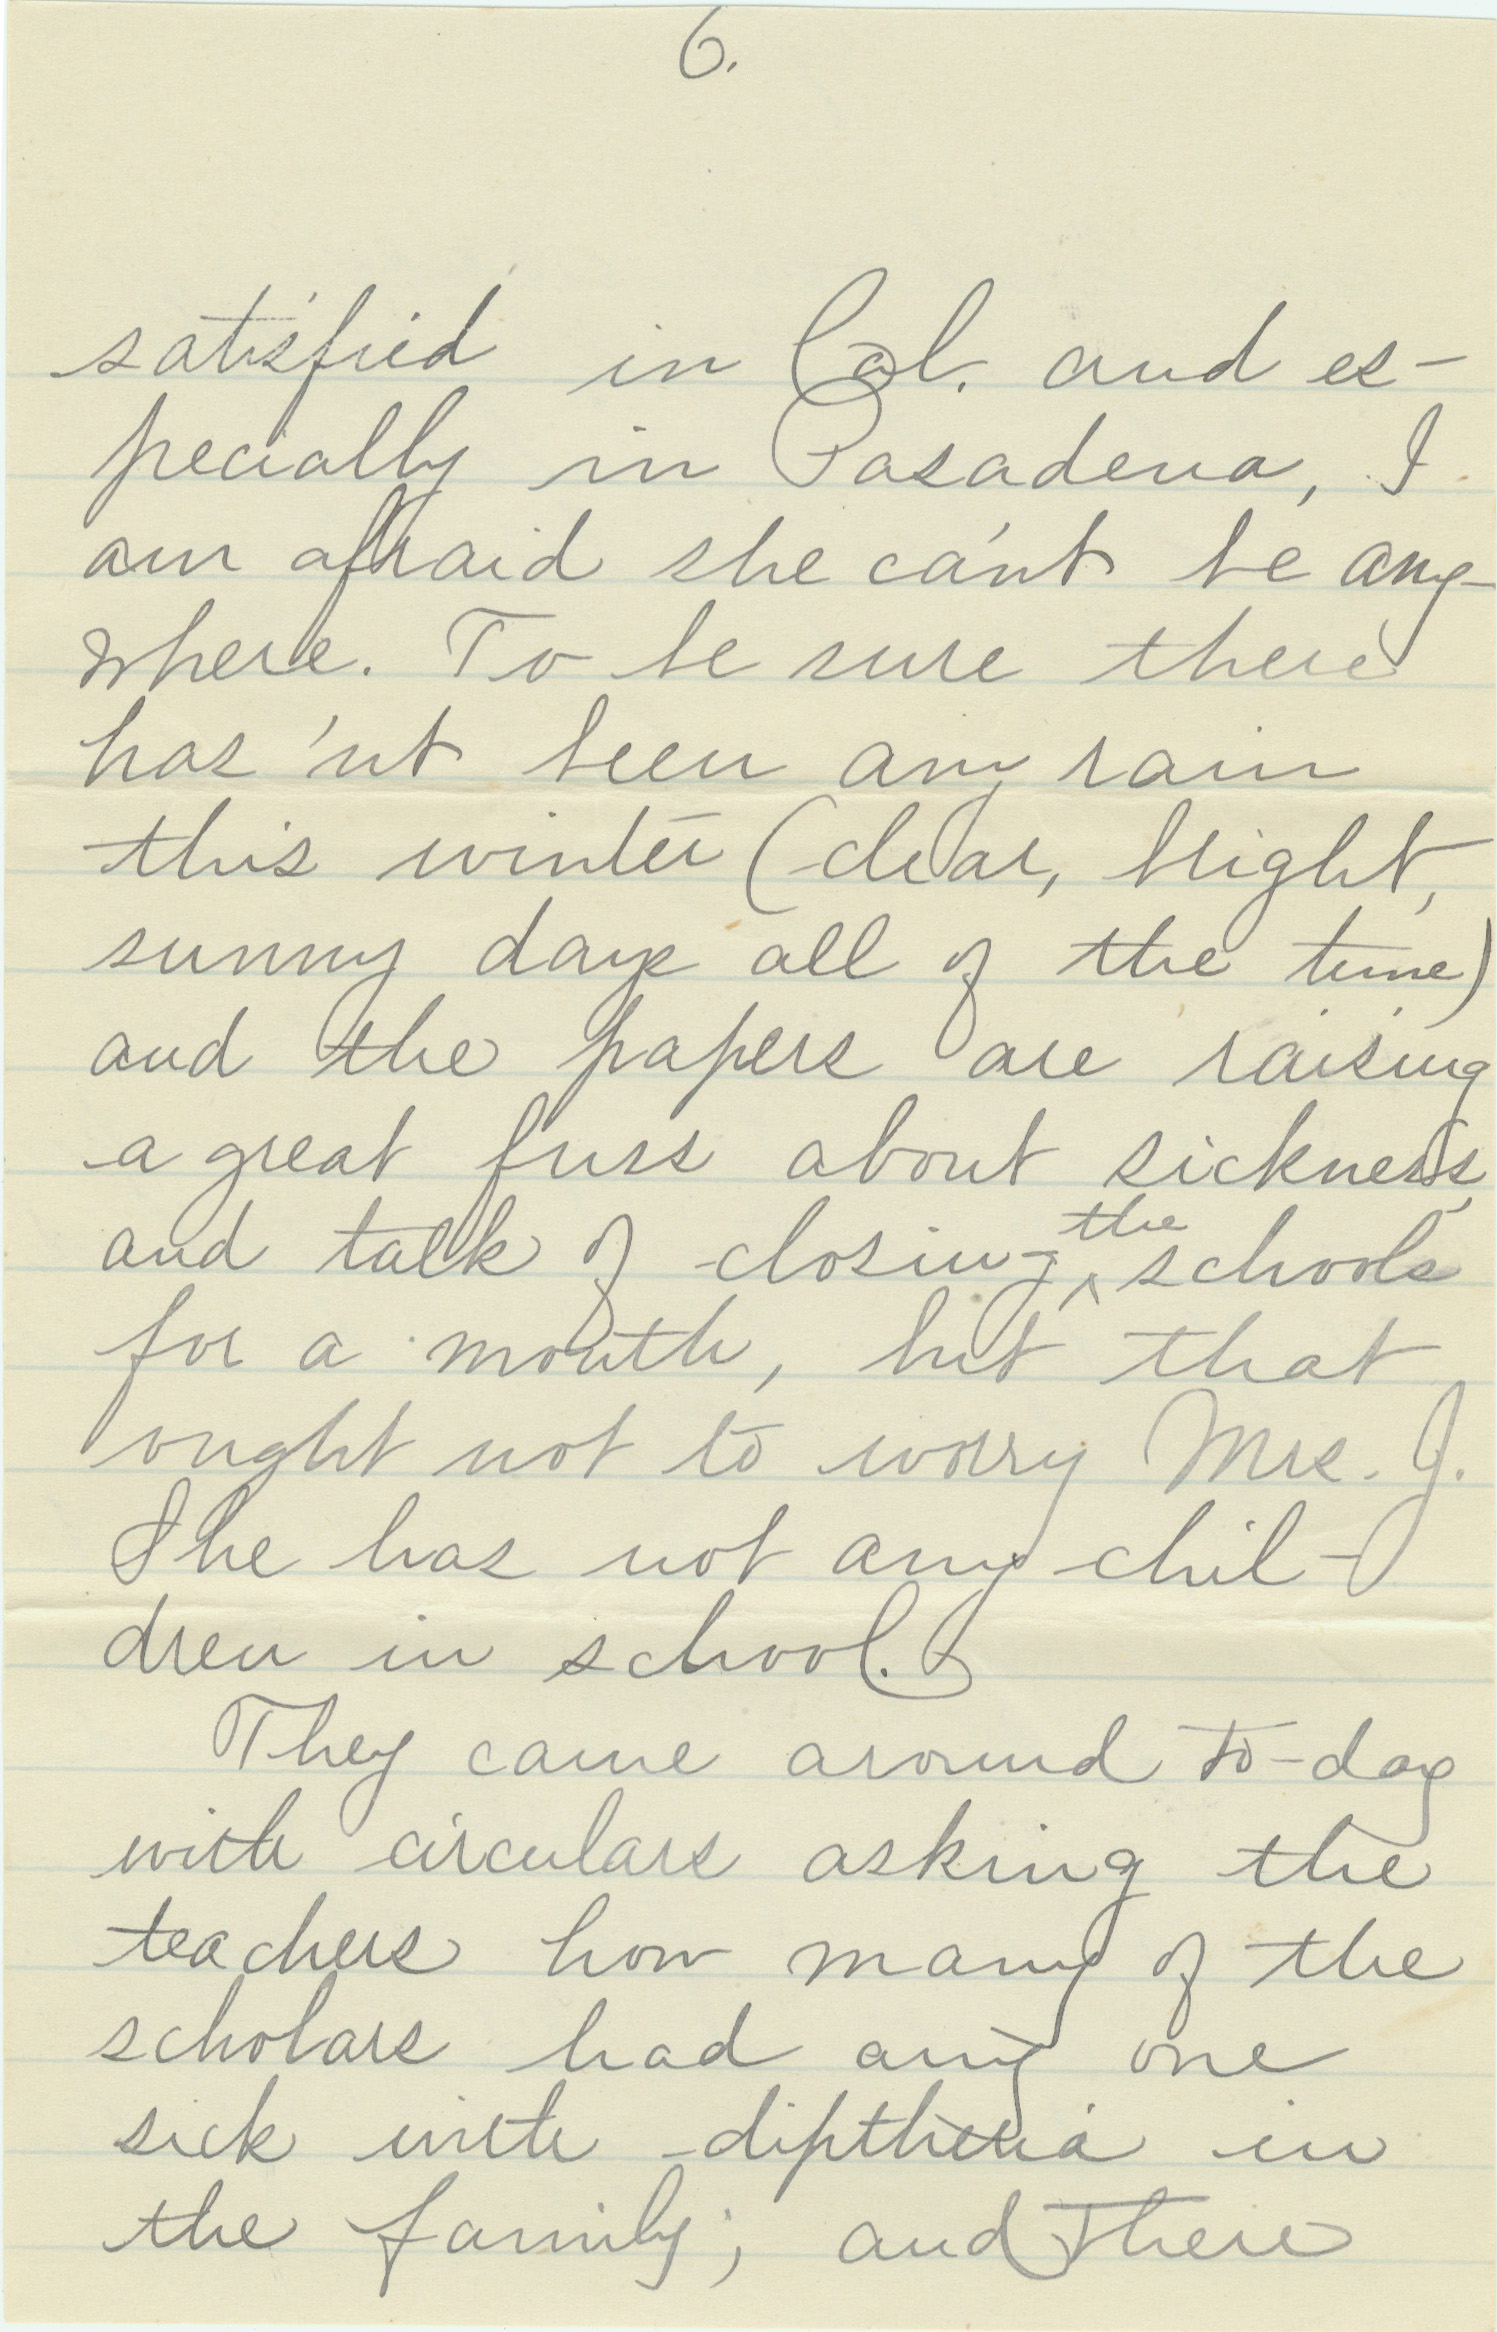 6.
satisfied in Cal. and es-
pecially in Pasadena, I
am afraid she ca'nt be any-
where. To be sure there
has 'nt been any rain
this winter (clear, bright,
sunny days all of the time)
and the papers are raising
a great fuss about sickness,
and talk of closing ^the schools
for a month, but that
ought not to worry Mrs. J.
She has not any chil-
dren in school.
They came around to-day
with circulars asking the
teachers how many of the
scholars had any one
sick with diptheria in
the family; and there